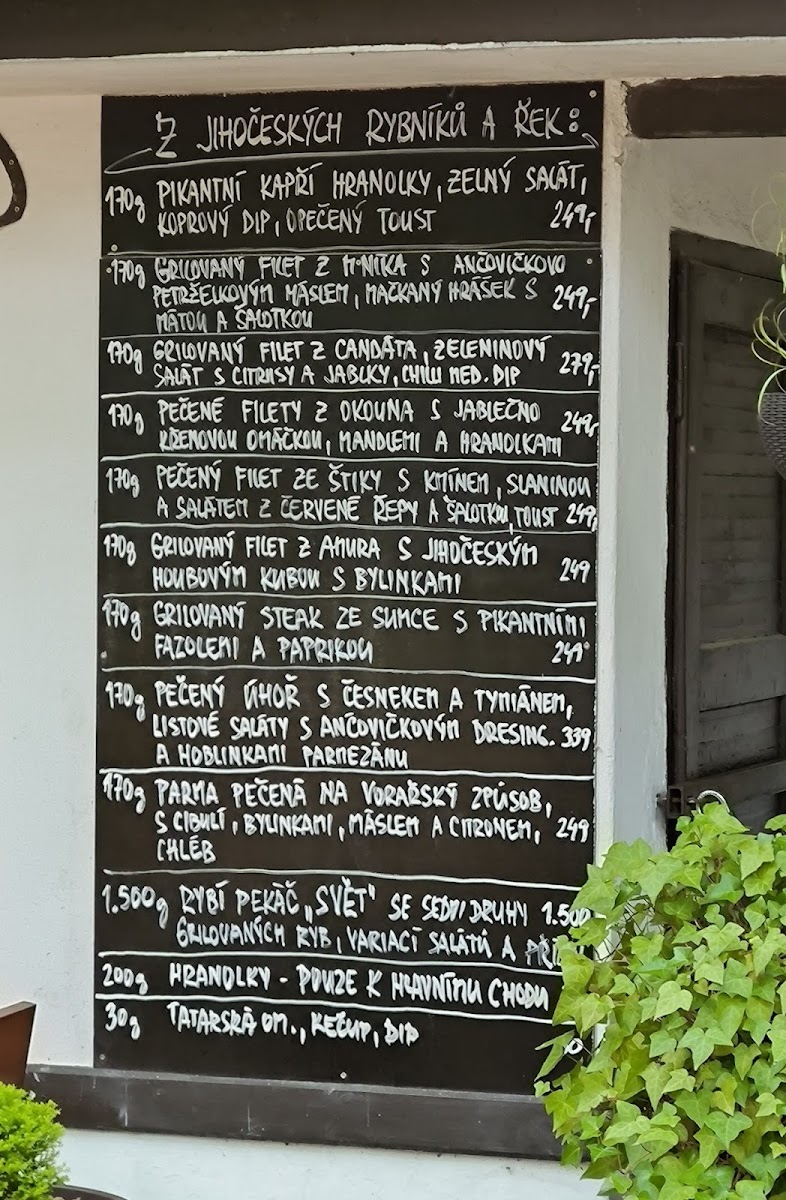 Z JIHOČESKÝCH RYBNÍKŮ A ŘEK:
170g PIKANTNÍ KAPŘÍ HRANOLKY, ZELNÝ SALÁT,
KOPROVÝ DIP, OPEČENÝ TOUST 249,-
170g GRILOVANÝ FILET Z MNÍKA S ANČOVIČKOVO
PETRŽELKOVÝM MÁSLEM, MAČKANÝ HRÁŠEK S 249,-
MÁTOU A ŠALOTKOU
170g GRILOVANÝ FILET Z CANDÁTA, ZELENINOVÝ
SALÁT S CITRUSY A JABLKY, CHILLI MED. DIP 279,-
170g PEČENÉ FILETY Z OKOUNA S JABLEČNO
KŘENOVOU OMÁČKOU, MANDLEMI A HRANOLKAMI 249,-
170g PEČENÝ FILET ZE ŠTIKY S KMÍNEM, SLANINOU
A SALÁTEM Z ČERVENÉ ŘEPY A ŠALOTKOU, TOUST 249,
170g GRILOVANÝ FILET Z AMURA S JIHOČESKÝM
HOUBOVÝM KUBOU S BYLINKAMI 249
170g GRILOVANÝ STEAK ZE SUMCE S PIKANTNÍMI
FAZOLEMI A PAPRIKOU 249
170g PEČENÝ ÚHOŘ S ČESNEKEM A TYMIÁNEM,
LISTOVÉ SALÁTY S ANČOVIČKOVÝM DRESING. 339
A HOBLINKAMI PARMEZÁNU
170g PARMA PEČENÁ NA VORAŘSKÝ ZPŮSOB,
S CIBULÍ, BYLINKAMI, MÁSLEM A CITRONEM, 249
CHLÉB
1.500g RYBÍ PEKÁČ „SVĚT" SE SEDMI DRUHY 1.500
GRILOVANÝCH RYB, VARIACÍ SALÁTŮ A
200g HRANOLKY - POUZE K HLAVNÍMU CHODU
30g TATARSKÁ OM., KEČUP, DIP